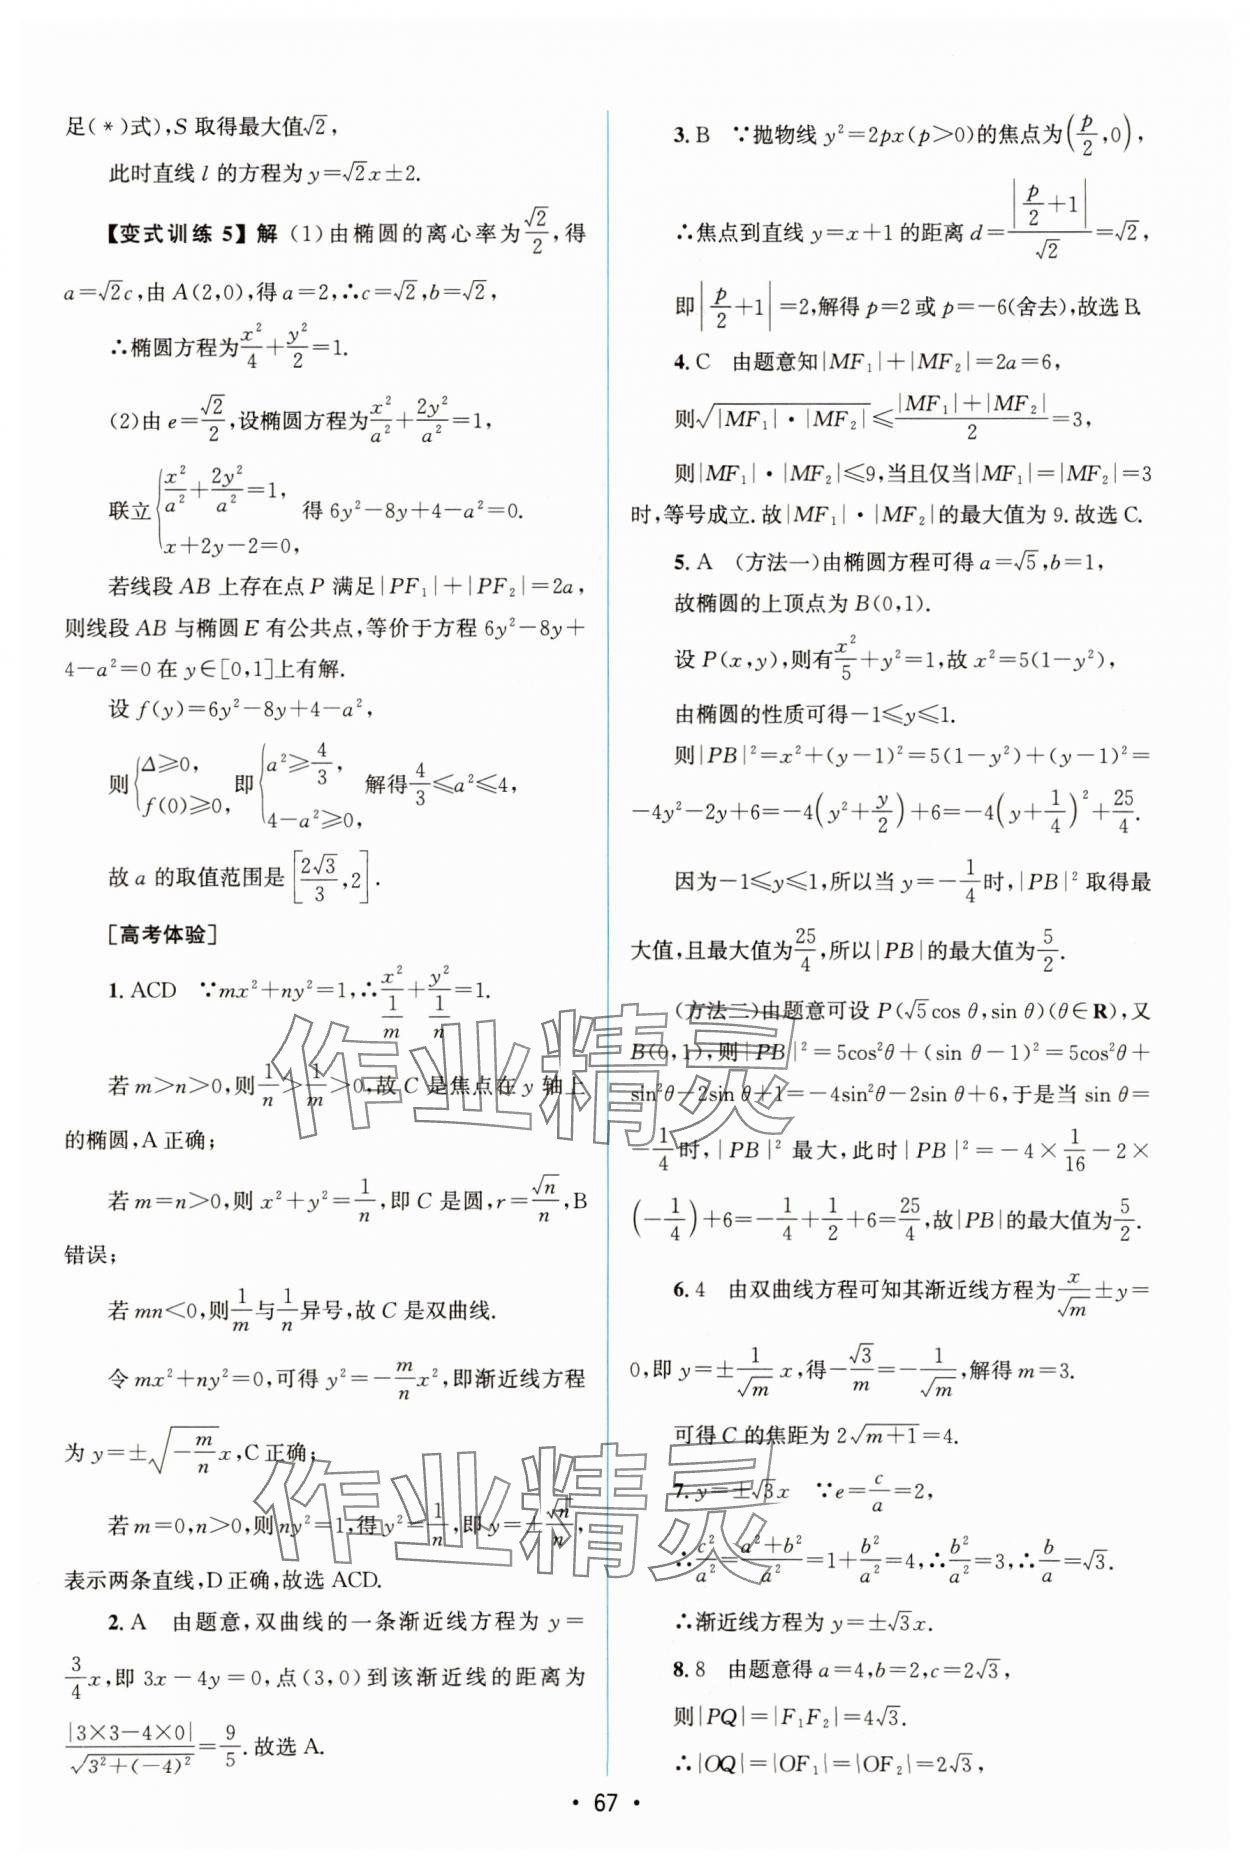 足(*)式),S 取得最大值√2,
此时直线 l 的方程为 y=√2x±2.
【变式训练 5】解 (1)由椭圆的离心率为√2/2,得
a=√2c,由 A(2,0),得 a=2,∴c=√2,b=√2,
∴椭圆方程为x²/4+y²/2=1.
(2)由 e=√2/2,设椭圆方程为x²/a²+2y²/a²=1,
联立{x²/a²+2y²/a²=1, x+2y-2=0, 得 6y²-8y+4-a²=0.
若线段 AB 上存在点 P 满足|PF₁|+|PF₂|=2a,
则线段 AB 与椭圆 E 有公共点,等价于方程 6y²-8y+
4-a²=0 在 y∈[0,1]上有解.
设 f(y)=6y²-8y+4-a²,
则{Δ≥0, f(0)≥0, 即{a²≥4/3, 4-a²≥0, 解得4/3≤a²≤4,
故 a 的取值范围是[2√3/3,2].
[高考体验]
1. ACD ∵mx²+ny²=1,∴x²/(1/m)+y²/(1/n)=1.
若 m>n>0,则1/n>1/m>0,故 C 是焦点在 y 轴上
的椭圆,A 正确;
若 m=n>0,则 x²+y²=1/n,即 C 是圆,r=√n/n,B
错误;
若 mn<0,则1/m与1/n异号,故 C 是双曲线.
令 mx²+ny²=0,可得 y²=-m/n x²,即渐近线方程
为 y=±√(-m/n)x,C 正确;
若 m=0,n>0,则 ny²=1,得 y²=1/n,即 y=±√n/n,
表示两条直线,D 正确,故选 ACD.
2. A 由题意,双曲线的一条渐近线方程为 y=
3/4x,即 3x-4y=0,点(3,0)到该渐近线的距离为
|3×3-4×0|/√(3²+(-4)²)=9/5.故选 A.
3. B ∵抛物线 y²=2px(p>0)的焦点为(p/2,0),
∴焦点到直线 y=x+1 的距离 d=|p/2+1|/√2=√2,
即|p/2+1|=2,解得 p=2 或 p=-6(舍去),故选 B.
4. C 由题意知|MF₁|+|MF₂|=2a=6,
则√(|MF₁|·|MF₂|)≤(|MF₁|+|MF₂|)/2=3,
则|MF₁|·|MF₂|≤9,当且仅当|MF₁|=|MF₂|=3
时,等号成立.故|MF₁|·|MF₂|的最大值为 9.故选 C.
5. A (方法一)由椭圆方程可得 a=√5,b=1,
故椭圆的上顶点为 B(0,1).
设 P(x,y),则有x²/5+y²=1,故 x²=5(1-y²),
由椭圆的性质可得-1≤y≤1.
则|PB|²=x²+(y-1)²=5(1-y²)+(y-1)²=
-4y²-2y+6=-4(y²+y/2)+6=-4(y+1/4)²+25/4.
因为-1≤y≤1,所以当 y=-1/4时,|PB|²取得最
大值,且最大值为25/4,所以|PB|的最大值为5/2.
(方法二)由题意可设 P(√5cos θ,sin θ)(θ∈R),又
B(0,1),则|PB|²=5cos²θ+(sin θ-1)²=5cos²θ+
sin²θ-2sin θ+1=-4sin²θ-2sin θ+6,于是当 sin θ=
-1/4时,|PB|²最大,此时|PB|²=-4×1/16-2×
(-1/4)+6=-1/4+1/2+6=25/4,故|PB|的最大值为5/2.
6. 4 由双曲线方程可知其渐近线方程为x/√m±y=
0,即 y=±1/√m x,得-√3/m=-1/√m,解得 m=3.
可得 C 的焦距为 2√(m+1)=4.
7. y=±√3x ∵e=c/a=2,
∴c²/a²=(a²+b²)/a²=1+b²/a²=4,∴b²/a²=3,∴b/a=√3.
∴渐近线方程为 y=±√3x.
8. 8 由题意得 a=4,b=2,c=2√3,
则|PQ|=|F₁F₂|=4√3.
∴|OQ|=|OF₁|=|OF₂|=2√3,
· 67 ·
作业精灵
作业精灵